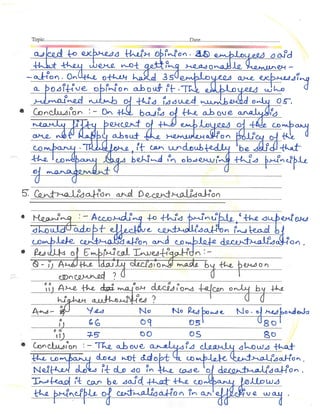 Topic Date
asked to express their opinion. 40 employees said
that they were not getting reasonable remuner-
-ation. On the other hand 35 employees are expressing
a positive opinion about it. The employees who
remained neutral of this issued numbered only 05.
• Conclusion :- On the basis of the above analysis
nearly fifty percent of the employees of the company
are not happy about the remuneration policy of the
company. Therefore, it can undoubtedly be said that
the company lags behind in observing this principle
of management
5. Centralisation and Decentralisation
• Meaning :- According to this principle, the superiors
should adopt effective centralisation instead of
complete centralisation and complete decentralisation.
• Results of Empirical Investigation :-
Q- i) Are the daily decisions made by the person
concerned ?
ii) Are the major decisions taken only by the
higher authorities ?
Ans- Yes No No Response No. of respondents
i) 66 09 05 80
ii) 75 00 05 80
• Conclusion :- The above analysis clearly shows that
the company does not adopt a complete centralisation.
Neither does it do so in the case of decentralisation.
Instead it can be said that the company follows
the principle of centralisation in an effective way.